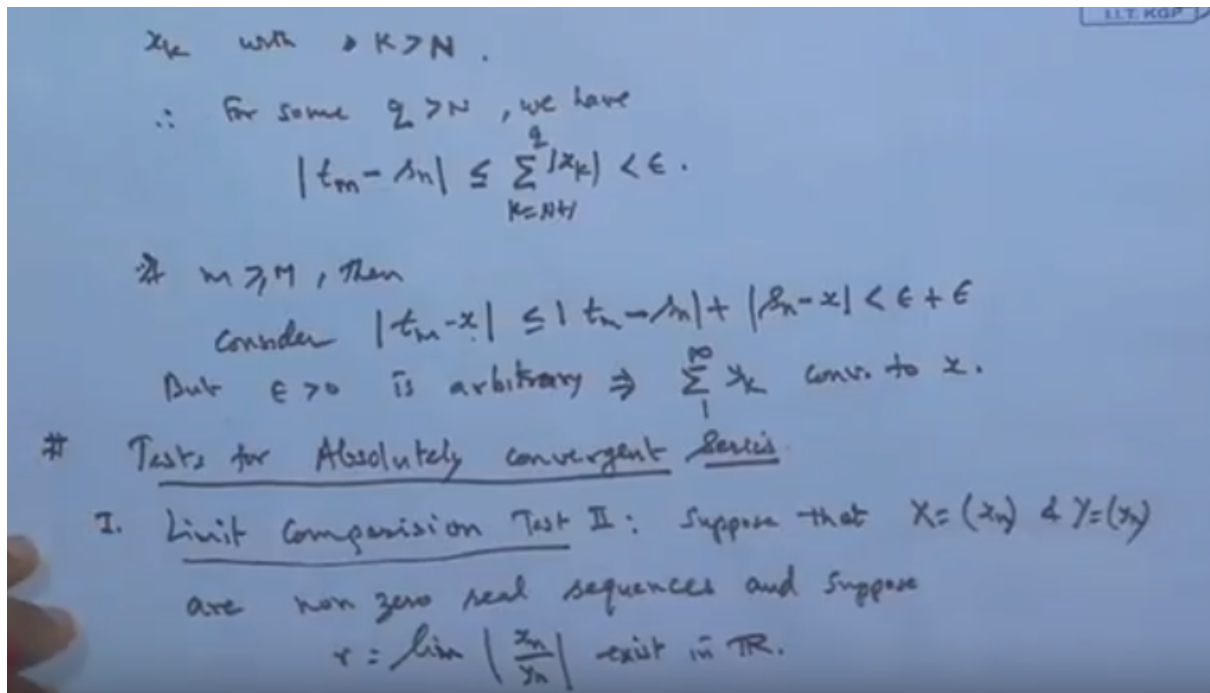 I.I.T. KGP
xₖ with K > N.
∴ For some q > N, we have
|tₘ - sₙ| ≤ ∑_{K=N+1}^{q} |xₖ| < ϵ.
If m ≥ M, then
consider |tₘ - x| ≤ |tₘ - sₙ| + |sₙ - x| < ϵ + ϵ
But ϵ > 0 is arbitrary ⇒ ∑_{1}^{∞} yₖ conv. to x.
# Tests for Absolutely convergent Series.
I. Limit Comparision Test II: Suppose that X = (xₙ) & Y = (yₙ)
are non zero real sequences and suppose
r = lim |xₙ/yₙ| exist in ℝ.